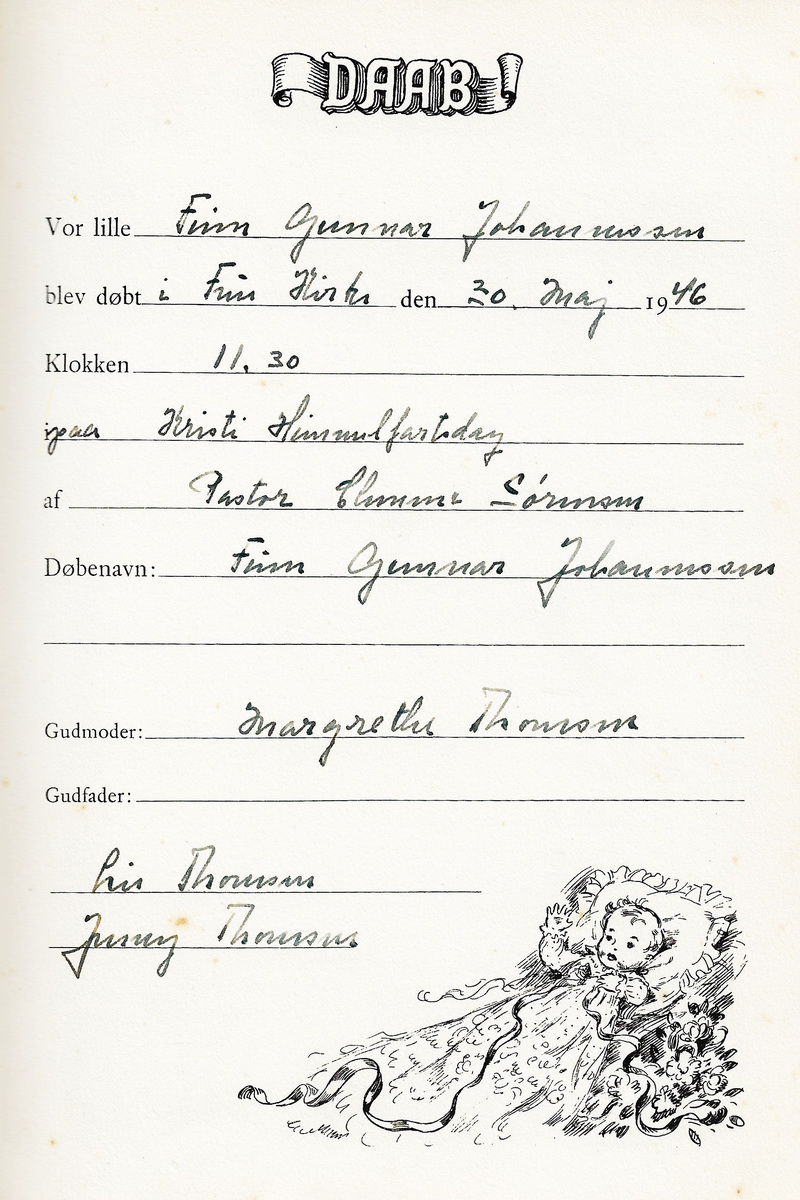 DAAB
Vor lille Finn Gunnar Johannessen
blev døbt i Fur Kirke den 30. Maj 1946
Klokken 11.30
paa Kristi Himmelfartsdag
af Pastor Sørensen
Døbenavn: Finn Gunnar Johannessen
Gudmoder: Margrethe Thomsen
Gudfader:
Lis Thomsen
Jenny Thomsen